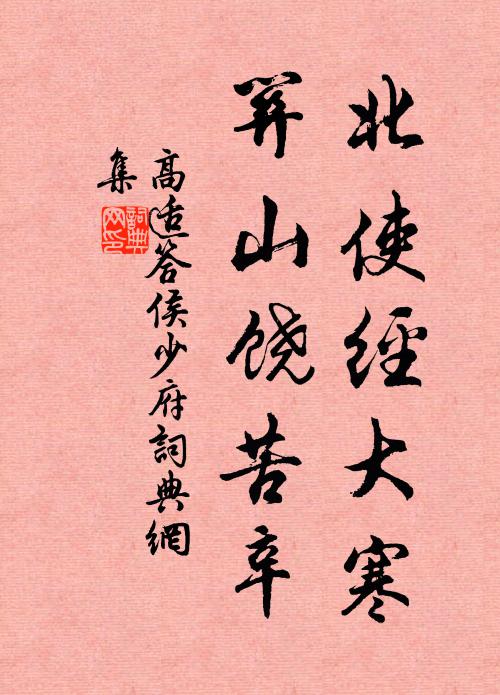 北使經大寒
关山饶苦辛
高适答侯少府詞典網
集
詞典
网印